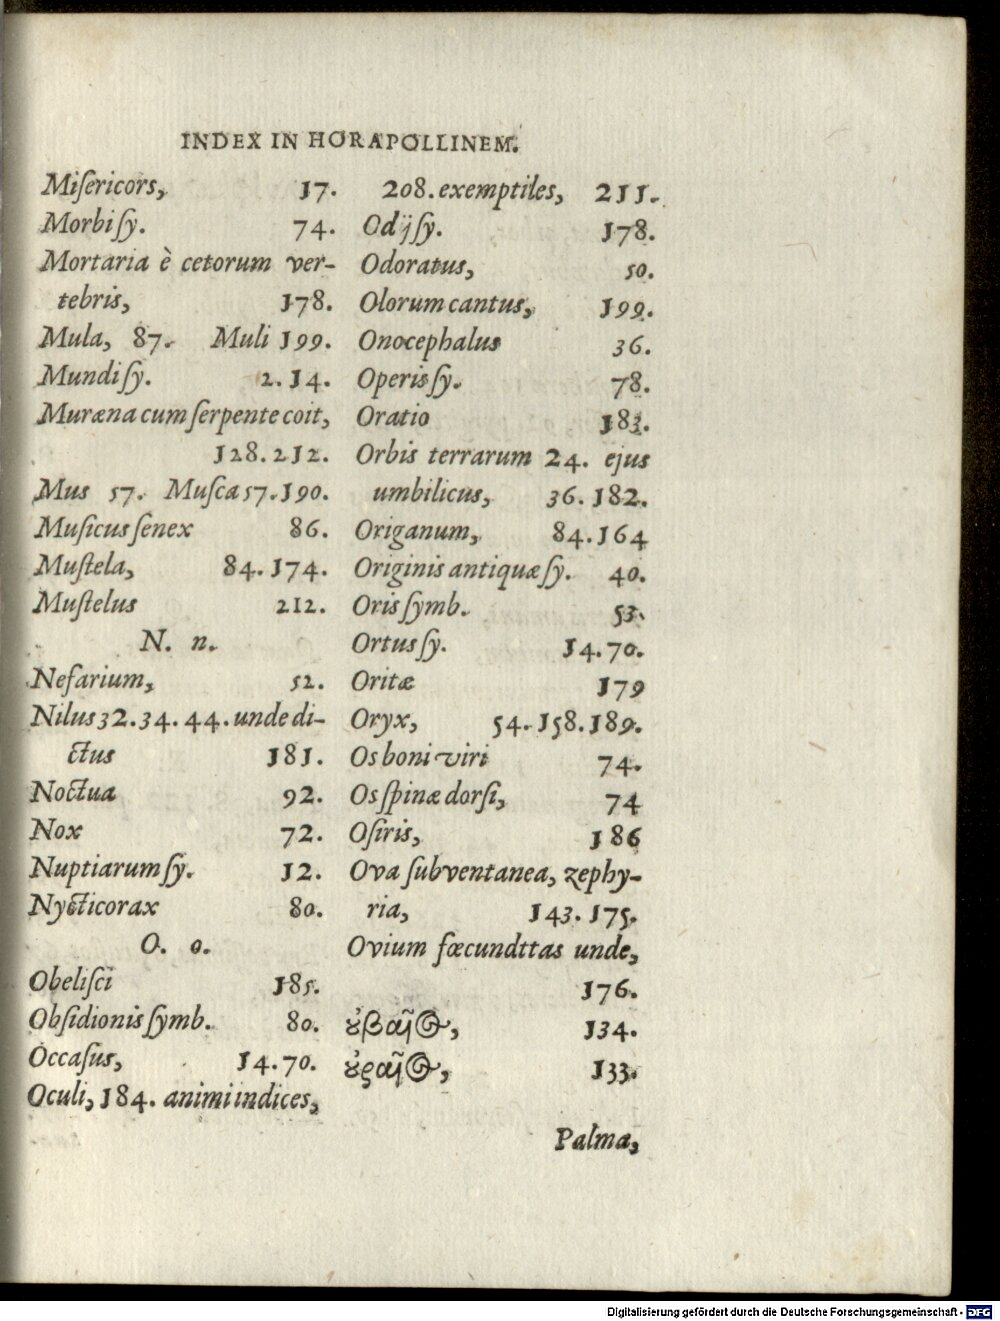 INDEX IN HORAPOLLINEM.
Miſericors, 17.
Morbi ſy. 74.
Mortaria è cetorum ver-
tebris, 178.
Mula, 87. Muli 199.
Mundi ſy. 2. 14.
Muræna cum ſerpente coit,
128. 212.
Mus 57. Muſca 57. 190.
Muſicus ſenex 86.
Muſtela, 84. 174.
Muſtelus 212.
N. n.
Nefarium, 52.
Nilus 32. 34. 44. unde di-
ctus 181.
Noctua 92.
Nox 72.
Nuptiarum ſy. 12.
Nycticorax 80.
O. o.
Obeliſci 185.
Obſidionis ſymb. 80.
Occaſus, 14. 70.
Oculi, 184. animi indices,
208. exemptiles, 211.
Odij ſy. 178.
Odoratus, 50.
Olorum cantus, 199.
Onocephalus 36.
Operis ſy. 78.
Oratio 183.
Orbis terrarum 24. ejus
umbilicus, 36. 182.
Origanum, 84. 164
Originis antiquæ ſy. 40.
Oris ſymb. 53.
Ortus ſy. 14. 70.
Oritæ 179
Oryx, 54. 158. 189.
Os boni viri 74.
Os ſpinæ dorſi, 74
Oſiris, 186
Ova ſubventanea, zephy-
ria, 143. 175.
Ovium fœcundttas unde,
176.
ȣ̓βαῖος, 134.
ȣ̓ραῖος, 133.
Palma,
Digitalisierung gefördert durch die Deutsche Forschungsgemeinschaft - DFG